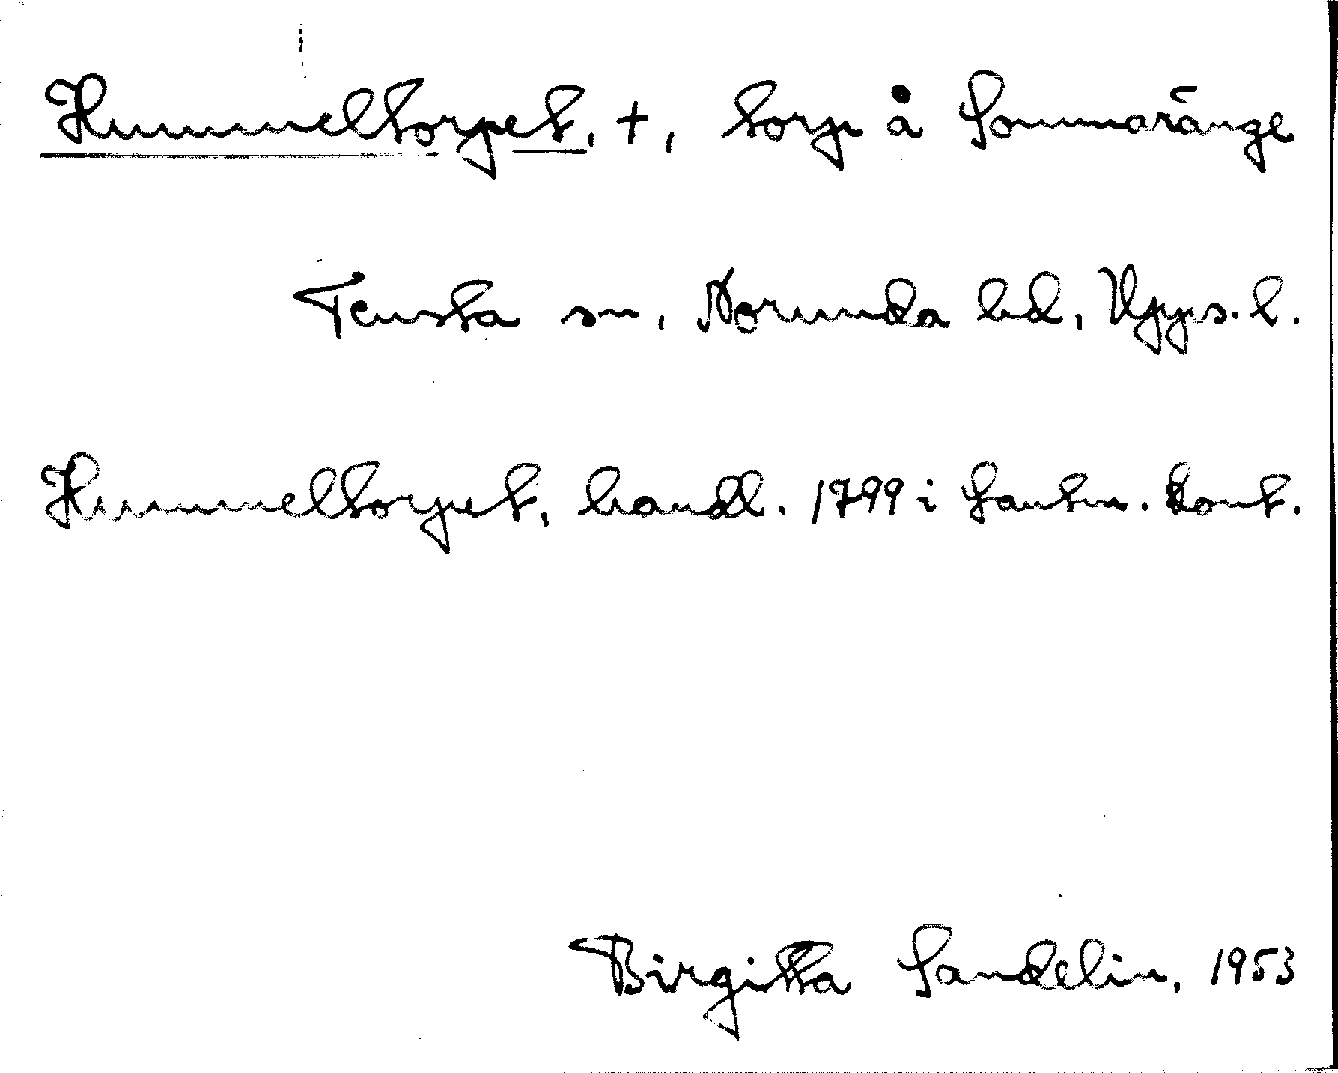 Hummeltorpet, +, torp å Sommaränge
Tensta sn, Norunda hd, Upps. l.
Hummeltorpet, handl. 1799 i Lantm. kont.
Birgitta Sandelin, 1953